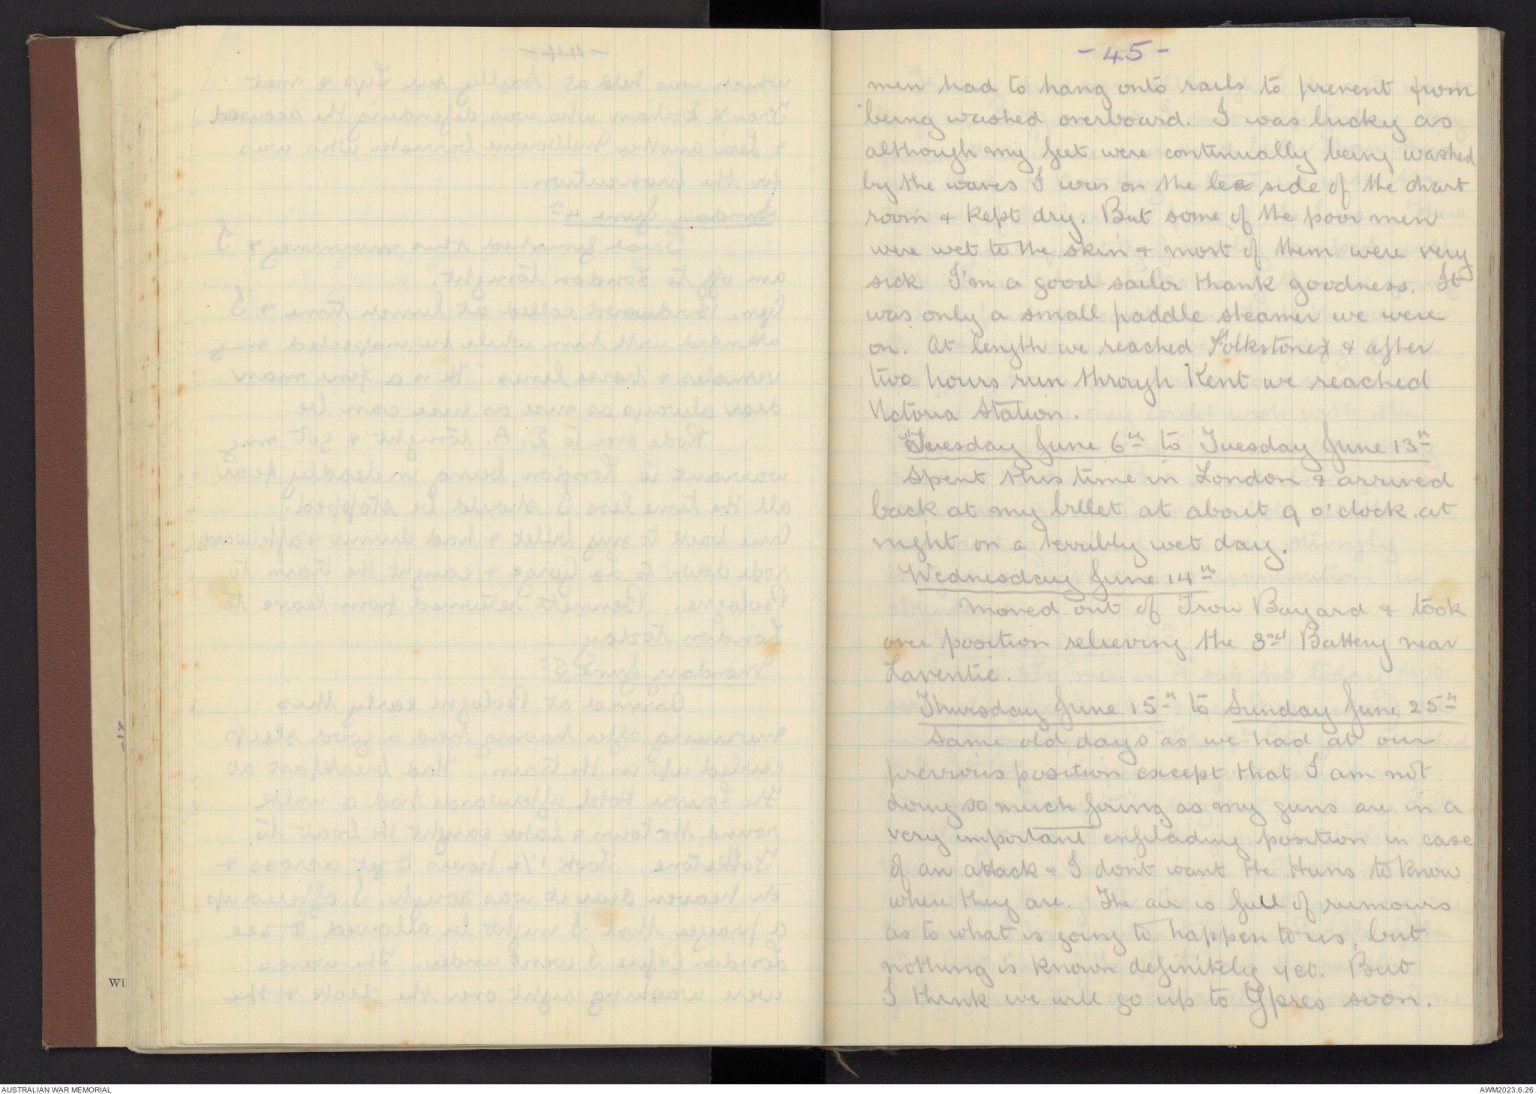 - 45 -
men had to hang onto rails to prevent from
being washed overboard. I was lucky as
although my feet were continually being washed
by the waves I was on the lee side of the chart
room & kept dry. But some of the poor men
were wet to the skin & most of them were very
sick I'm a good sailor thank goodness. It
was only a small paddle steamer we were
on. At length we reached Folkstone & after
two hours run through Kent we reached
Victoria Station.
Tuesday June 6th to Tuesday June 13th
Spent this time in London & arrived
back at my billet at about 9 o'clock at
night on a terribly wet day.
Wednesday June 14th
Moved out of Trou Bayard & took
over position relieving the 3rd Battery near
Laventie.
Thursday June 15th to Sunday June 25th
Same old days as we had at our
previous position except that I am not
doing so much firing as my guns are in a
very important enfilading position in case
of an attack & I dont want the Huns to know
where they are. The air is full of rumours
as to what is going to happen to us, but
nothing is known definitely yet. But
I think we will go up to Ypres soon.
Wi
AUSTRALIAN WAR MEMORIAL
AWM2023.6.26